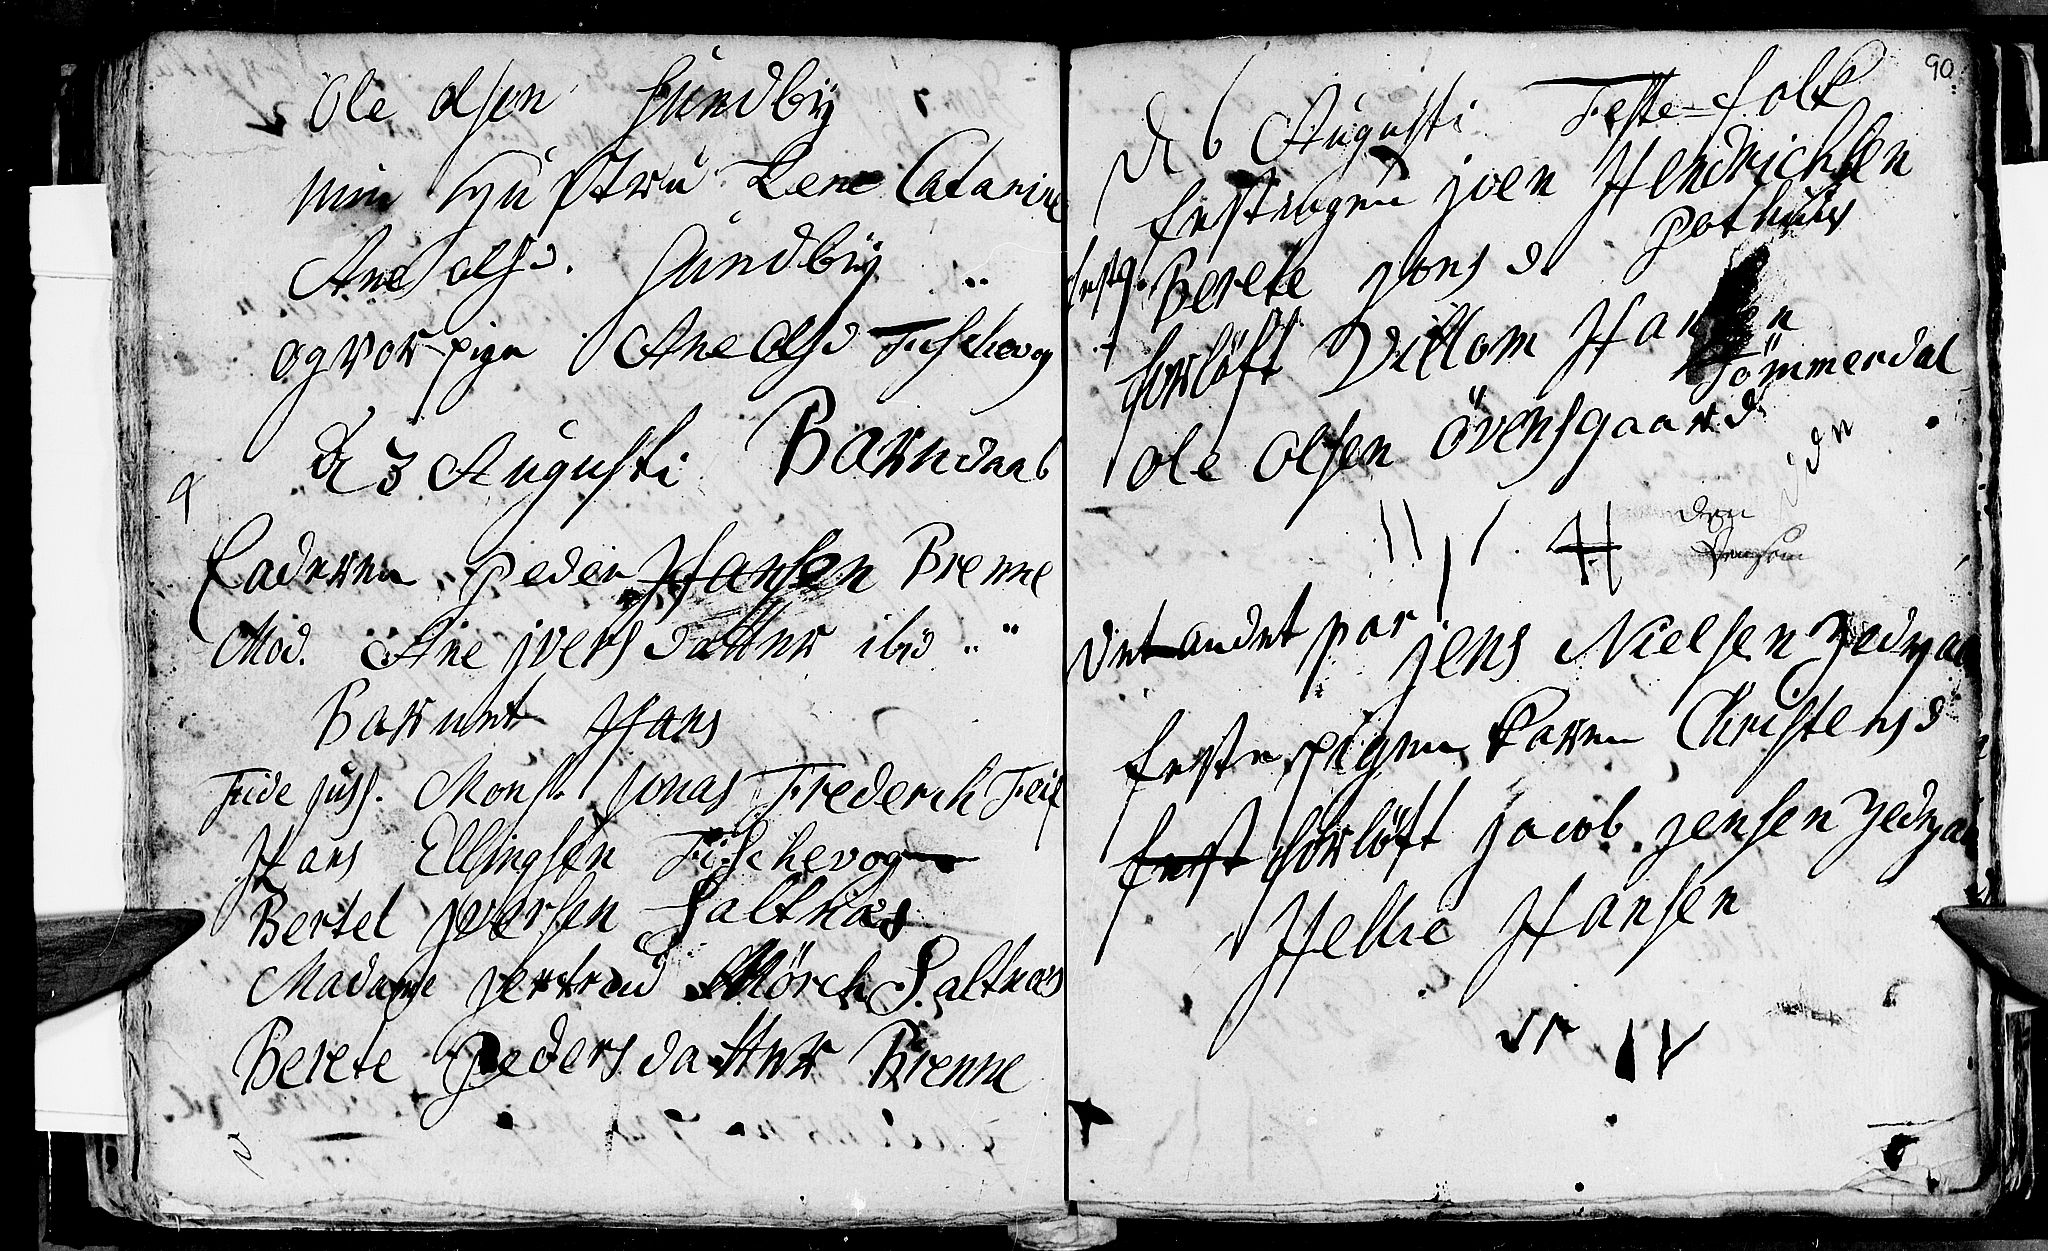 Ole Olsen Sundbÿ
min Hustru Lene Catarine
Ane Olsd. Sundbÿ
og vor pige Ane Olsd Fischevog
D 3 Augusti Barndaab
Faderen Peder Hansen Brenne
Mod. Ane Jvers datter ibid
Barnet Hans
Fide juss. Mons. Jonas Frederich Feif
Hans Ellingsen Fischevog
Bertel Jversen Saltnæs
Madame Jertrud Mörch Saltnæs
Berete Peders datter Brenne
90.
D 6 Augusti Feste-folk
Festingen Joen Hendrichsen
festq. Berete Jons d. Pothuus
forlöft Villom Hansen
Tömmerdal
Ole Olsen Övensgaard
den
Det andet par Jens Nielsen
feste pigen Karen Christensd
fest forlöft Jacob Jensen
Hellie Hansen